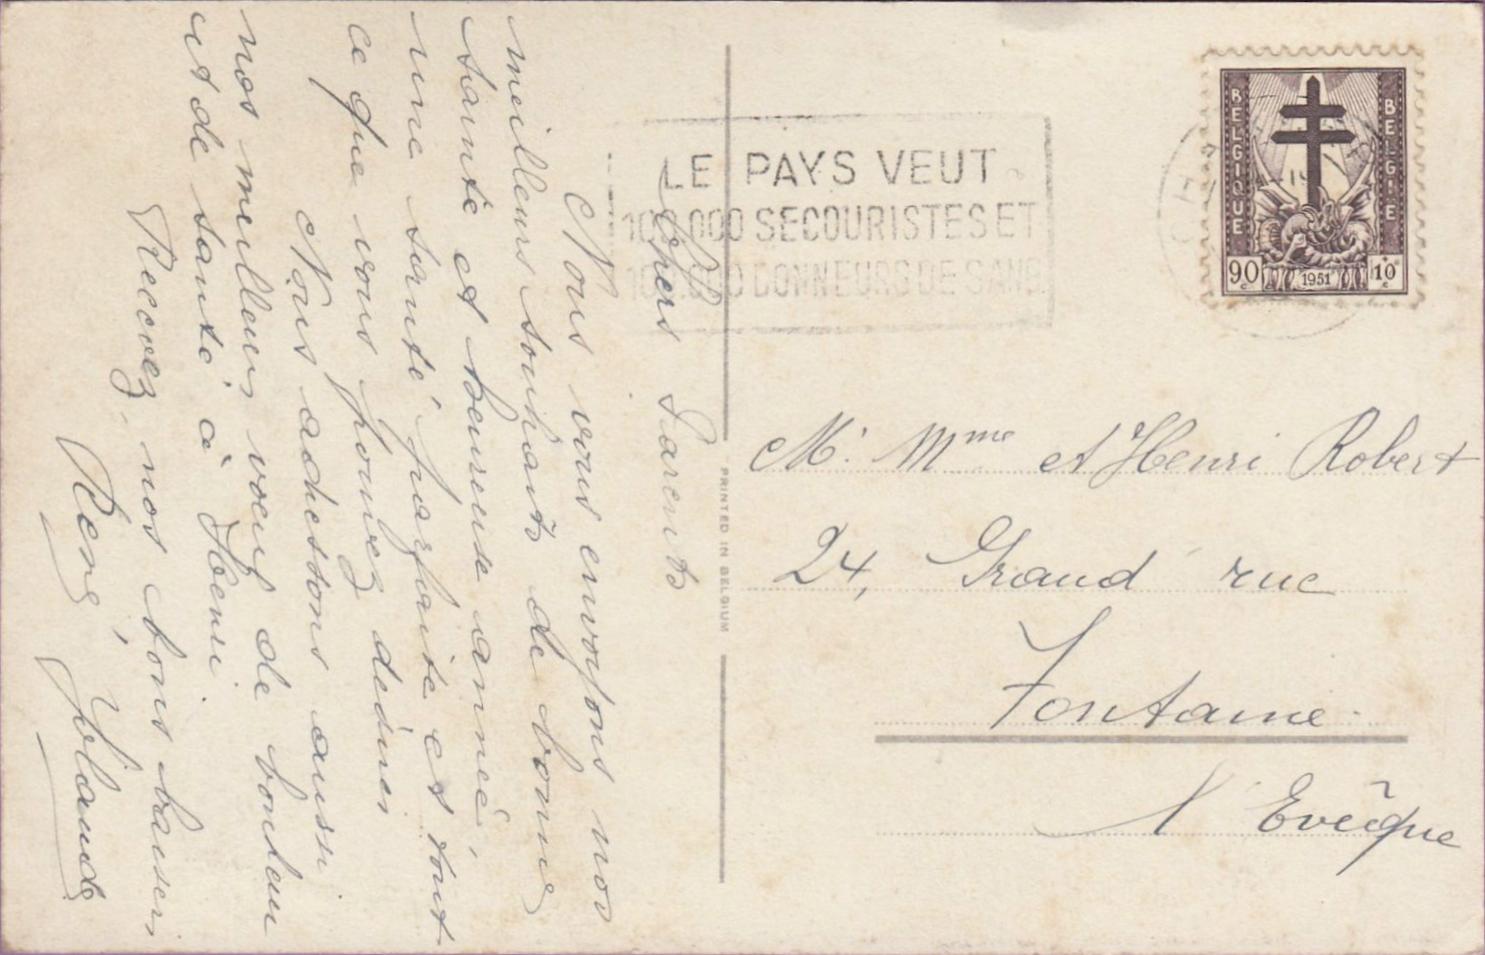 Chers Parents
Nous vous envoyons nos
meilleurs souhaits de bonne
santé et heureuse année
une santé parfaite et tout
ce que vous pouvez désirer
Nous adressons aussi
nos meilleurs voeux de bonheur
et de santé à Henri
Recevez nos bons baisers
René Yolande
LE PAYS VEUT
100.000 SECOURISTES ET
100.000 DONNEURS DE SANG
BELGIQUE
BELGIE
90 c
1951
10 c
PRINTED IN BELGIUM
Mr Mme et Henri Robert
24, Grand rue
Fontaine
l'Evêque